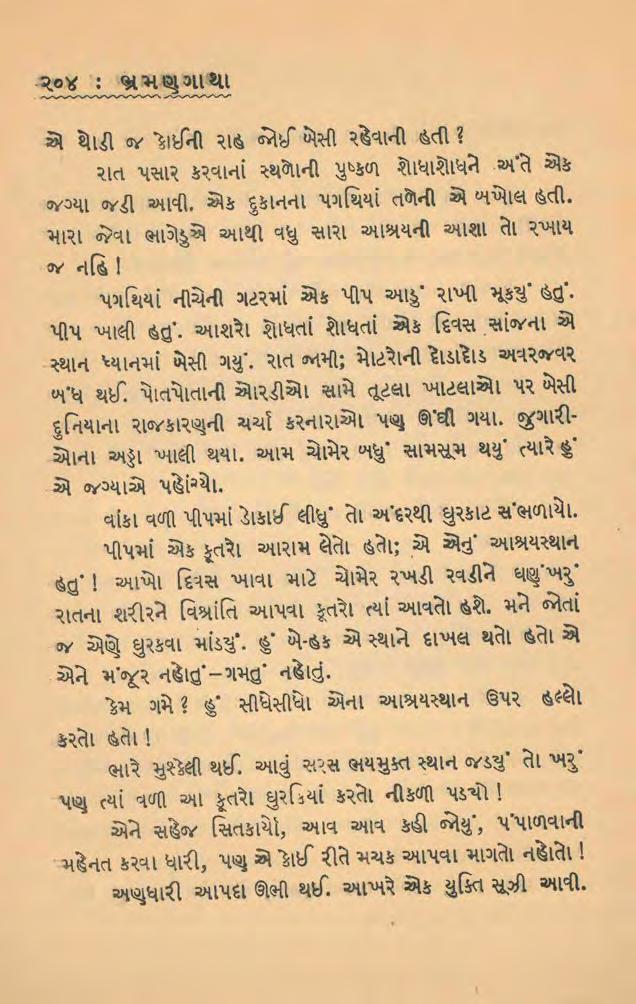 ૨૦૪ : ભ્રમણગાથા
એ થોડી જ કોઈની રાહ જોઈ બેસી રહેવાની હતી ?
રાત પસાર કરવાનાં સ્થળોની પુષ્કળ શોધાશોધને અંતે એક
જગ્યા જડી આવી. એક દુકાનના પગથિયાં તળેની એ બખોલ હતી.
મારા જેવા ભાગેડુએ આથી વધુ સારા આશ્રયની આશા તો રખાય
જ નહિ !
પગથિયાં નીચેની ગટરમાં એક પીપ આડું રાખી મૂકયું હતું.
પીપ ખાલી હતું. આશરો શોધતાં શોધતાં એક દિવસ સાંજના એ
સ્થાન ધ્યાનમાં બેસી ગયું. રાત જામી; મોટરોની દોડાદોડ અવરજવર
બંધ થઈ. પોતપોતાની ઓરડીઓ સામે તૂટલા ખાટલાઓ પર બેસી
દુનિયાના રાજકારણની ચર્ચા કરનારાઓ પણ ઊંઘી ગયા. જુગારી-
ઓના અડ્ડા ખાલી થયા. આમ ચોમેર બધું સામસૂમ થયું ત્યારે હું
એ જગ્યાએ પહોંચ્યો.
વાંકા વળી પીપમાં ડોકાઈ લીધું તો અંદરથી ઘુરકાટ સંભળાયો.
પીપમાં એક કૂતરો આરામ લેતો હતો; એ એનું આશ્રયસ્થાન
હતું ! આખો દિવસ ખાવા માટે ચોમેર રખડી રવડીને ઘણુંખરું
રાતના શરીરને વિશ્રાંતિ આપવા કૂતરો ત્યાં આવતો હશે. મને જોતાં
જ એણે ઘુરકવા માંડયું. હું બે-હક એ સ્થાને દાખલ થતો હતો એ
એને મંજૂર નહોતું–ગમતું નહોતું.
કેમ ગમે ? હું સીધેસીધો એના આશ્રયસ્થાન ઉપર હલ્લો
કરતો હતો !
ભારે મુશ્કેલી થઈ. આવું સરસ ભયમુક્ત સ્થાન જડયું તો ખરું
પણ ત્યાં વળી આ કૂતરો ઘુરકિયાં કરતો નીકળી પડયો !
એને સહેજ સિતકાર્યો, આવ આવ કહી જોયું, પંપાળવાની
મહેનત કરવા ધારી, પણ એ કોઈ રીતે મચક આપવા માગતો નહોતો !
અણધારી આપદા ઊભી થઈ. આખરે એક યુક્તિ સૂઝી આવી.